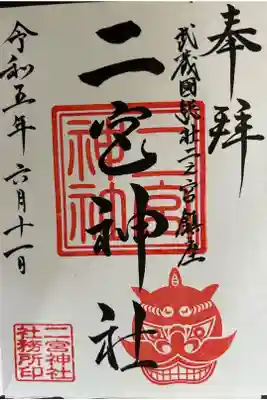 奉拝
武蔵國総社二之宮鎮座
二宮神社
令和五年 六月十一日
二宮神社
社務所印